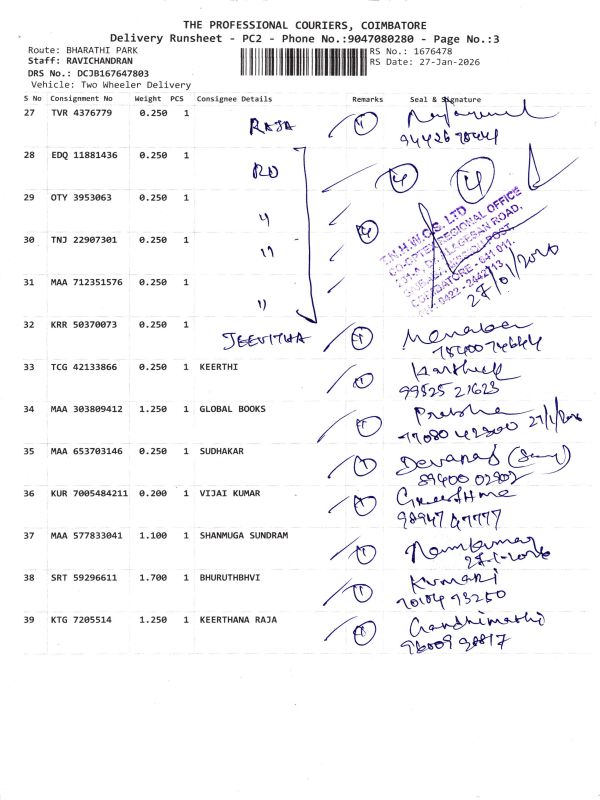 THE PROFESSIONAL COURIERS, COIMBATORE
Delivery Runsheet - PC2 - Phone No.:9047080280 - Page No.:3
Route: BHARATHI PARK
RS No.: 1676478
Staff: RAVICHANDRAN
RS Date: 27-Jan-2026
DRS No.: DCJB167647803
Vehicle: Two Wheeler Delivery
S No Consignment No Weight PCS Consignee Details Remarks Seal & Signature
27 TVR 4376779 0.250 1 RAJA 1
28 EDQ 11881436 0.250 1 RO 4 4
29 OTY 3953063 0.250 1 "
30 TNJ 22907301 0.250 1 " 4
T.N.H.W.C.S. LTD
CO-OPTEX REGIONAL OFFICE
COIMBATORE - 641 011.
27/01/2026
31 MAA 712351576 0.250 1 "
32 KRR 50370073 0.250 1 JEEVITHA 1
33 TCG 42133866 0.250 1 KEERTHI 1 Karthick
99525 21623
34 MAA 303809412 1.250 1 GLOBAL BOOKS 1 27/1/2026
35 MAA 653703146 0.250 1 SUDHAKAR 1
89400 02902
36 KUR 7005484211 0.200 1 VIJAI KUMAR 1
98947 47777
37 MAA 577833041 1.100 1 SHANMUGA SUNDRAM 1 Ramkumar
27-1-2026
38 SRT 59296611 1.700 1 BHURUTHBHVI 1 Kumari
39 KTG 7205514 1.250 1 KEERTHANA RAJA 1 Gandhimathi